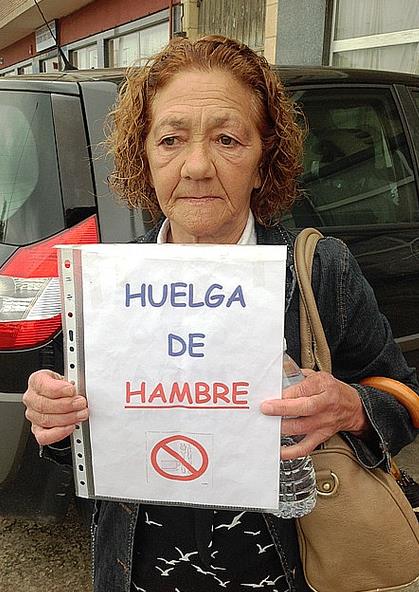 HUELGA
DE
HAMBRE